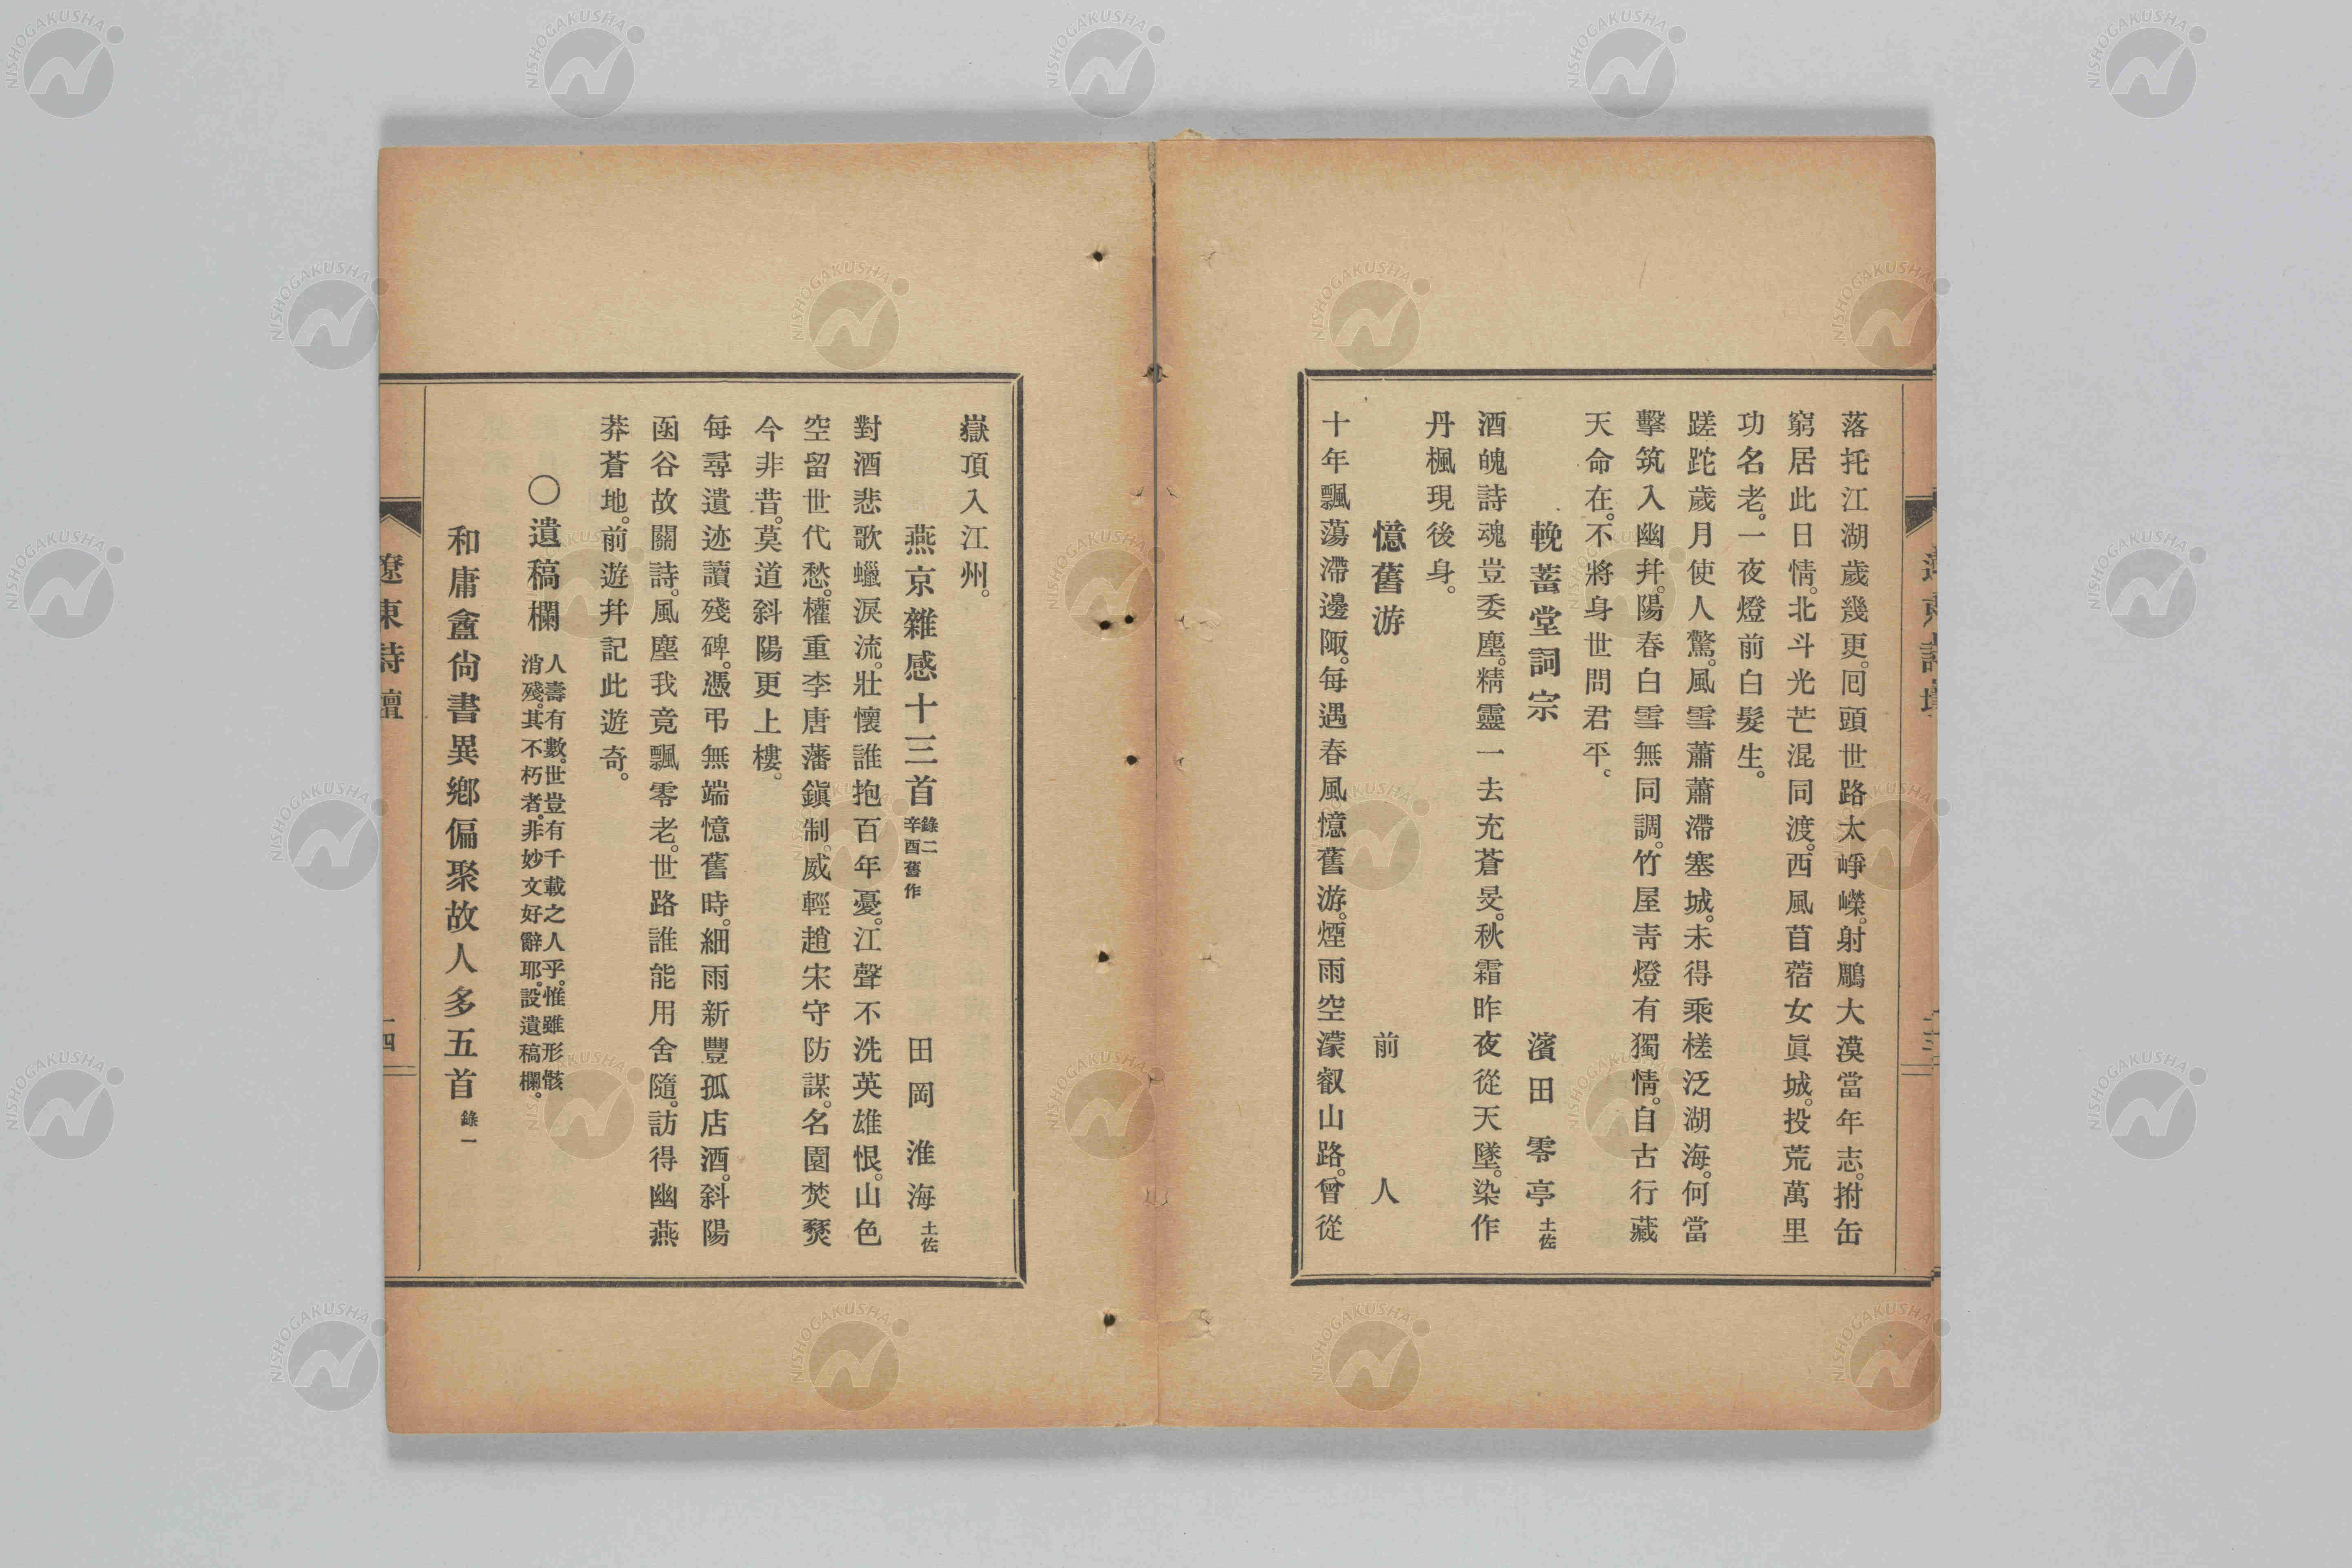 落托江湖歲幾更。囘頭世路太崢嶸。射鵰大漠當年志。拊缶
窮居此日情。北斗光芒混同渡。西風苜蓿女眞城。投荒萬里
功名老。一夜燈前白髮生。
蹉跎歲月使人驚。風雪蕭蕭滯塞城。未得乘槎泛湖海。何當
擊筑入幽幷。陽春白雪無同調。竹屋靑燈有獨情。自古行藏
天命在。不將身世問君平。
輓蓄堂詞宗 濱田零亭 土佐
酒魄詩魂豈委塵。精靈一去充蒼旻。秋霜昨夜從天墜。染作
丹楓現後身。
憶舊游 前人
十年飄蕩滯邊陬。每遇春風憶舊游。煙雨空濛叡山路。曾從
嶽頂入江州。
燕京雜感十三首 錄二 辛酉舊作 田岡淮海 土佐
對酒悲歌蠟淚流。壯懷誰抱百年憂。江聲不洗英雄恨。山色
空留世代愁。權重李唐藩鎭制。威輕趙宋守防謀。名園焚燹
今非昔。莫道斜陽更上樓。
每尋遺迹讀殘碑。憑弔無端憶舊時。細雨新豐孤店酒。斜陽
函谷故關詩。風塵我竟飄零老。世路誰能用舍隨。訪得幽燕
莽蒼地。前遊幷記此遊奇。
〇遺稿欄 人壽有數。世豈有千載之人乎。惟雖形骸
消殘。其不朽者。非妙文好辭耶。設遺稿欄。
和庸盦尙書異鄕偏聚故人多五首 錄一
遼東詩壇
十四
NISHOGAKUSHA